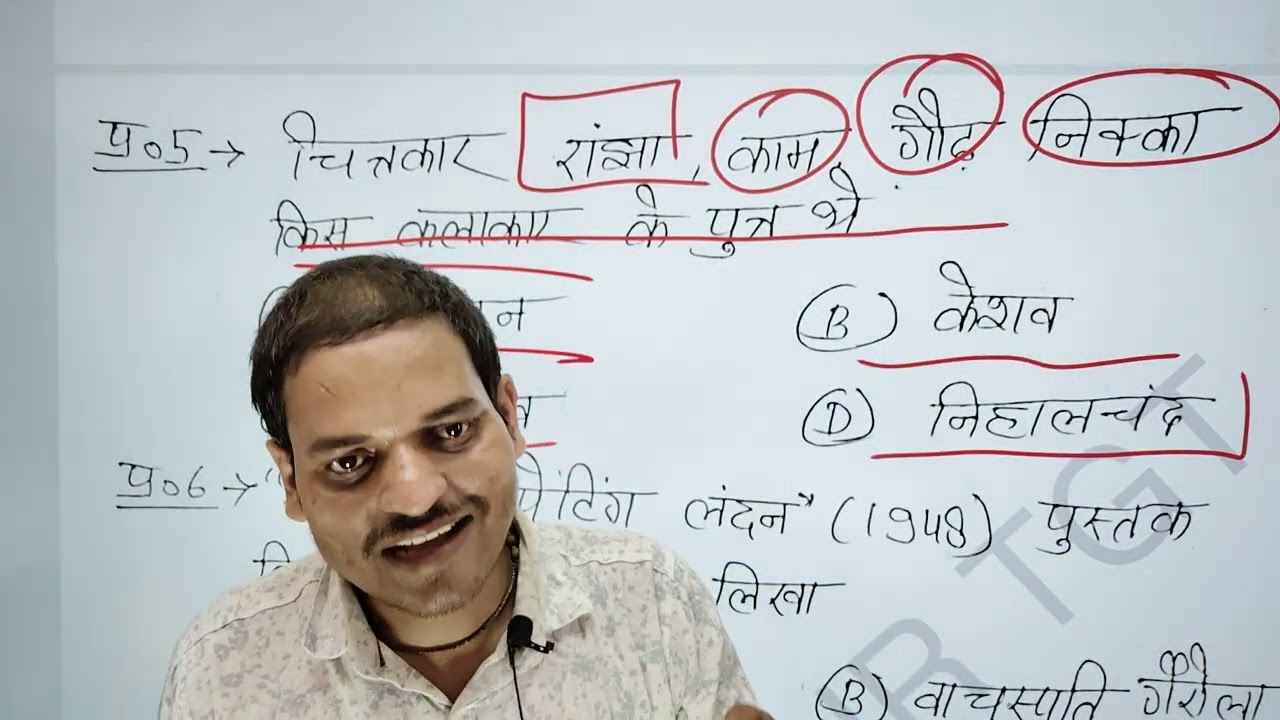 प्र०5→ चित्रकार रांझा, काम, गौढ़ निक्का
किस कलाकार के पुत्र थे
(B) केशव
(D) निहालचंद
प्र०6→ पेंटिंग लंदन" (1948) पुस्तक
लिखा
(B) वाचस्पति गैरोला
R TGT